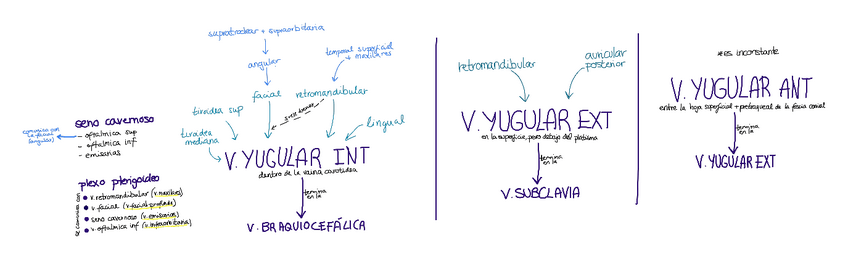 supratroclear + supraorbitaria
angular
temporal superficial
+ maxilares
facial
retromandibular
suele drenar
tiroidea sup
tiroidea
mediana
lingual
V. YUGULAR INT
dentro de la vaina carotidea
termina
en la
V. BRAQUIOCEFÁLICA
seno cavernoso
- oftalmica sup
- oftalmica inf
- emisarias
comunica con
la facial
(angular)
plexo pterigoideo
se comunica con
v. retromandibular (v. maxilar)
v. facial (v. facial profunda)
seno cavernoso (v. emisarias)
v. oftalmica inf (v. infraorbitaria)
retromandibular
auricular
posterior
V. YUGULAR EXT
en la superficie, pero debajo del platisma
termina
en la
V. SUBCLAVIA
*es inconstante
V. YUGULAR ANT
entre la hoja superficial + pretraqueal de la fascia cervical
termina
en la
V. YUGULAR EXT